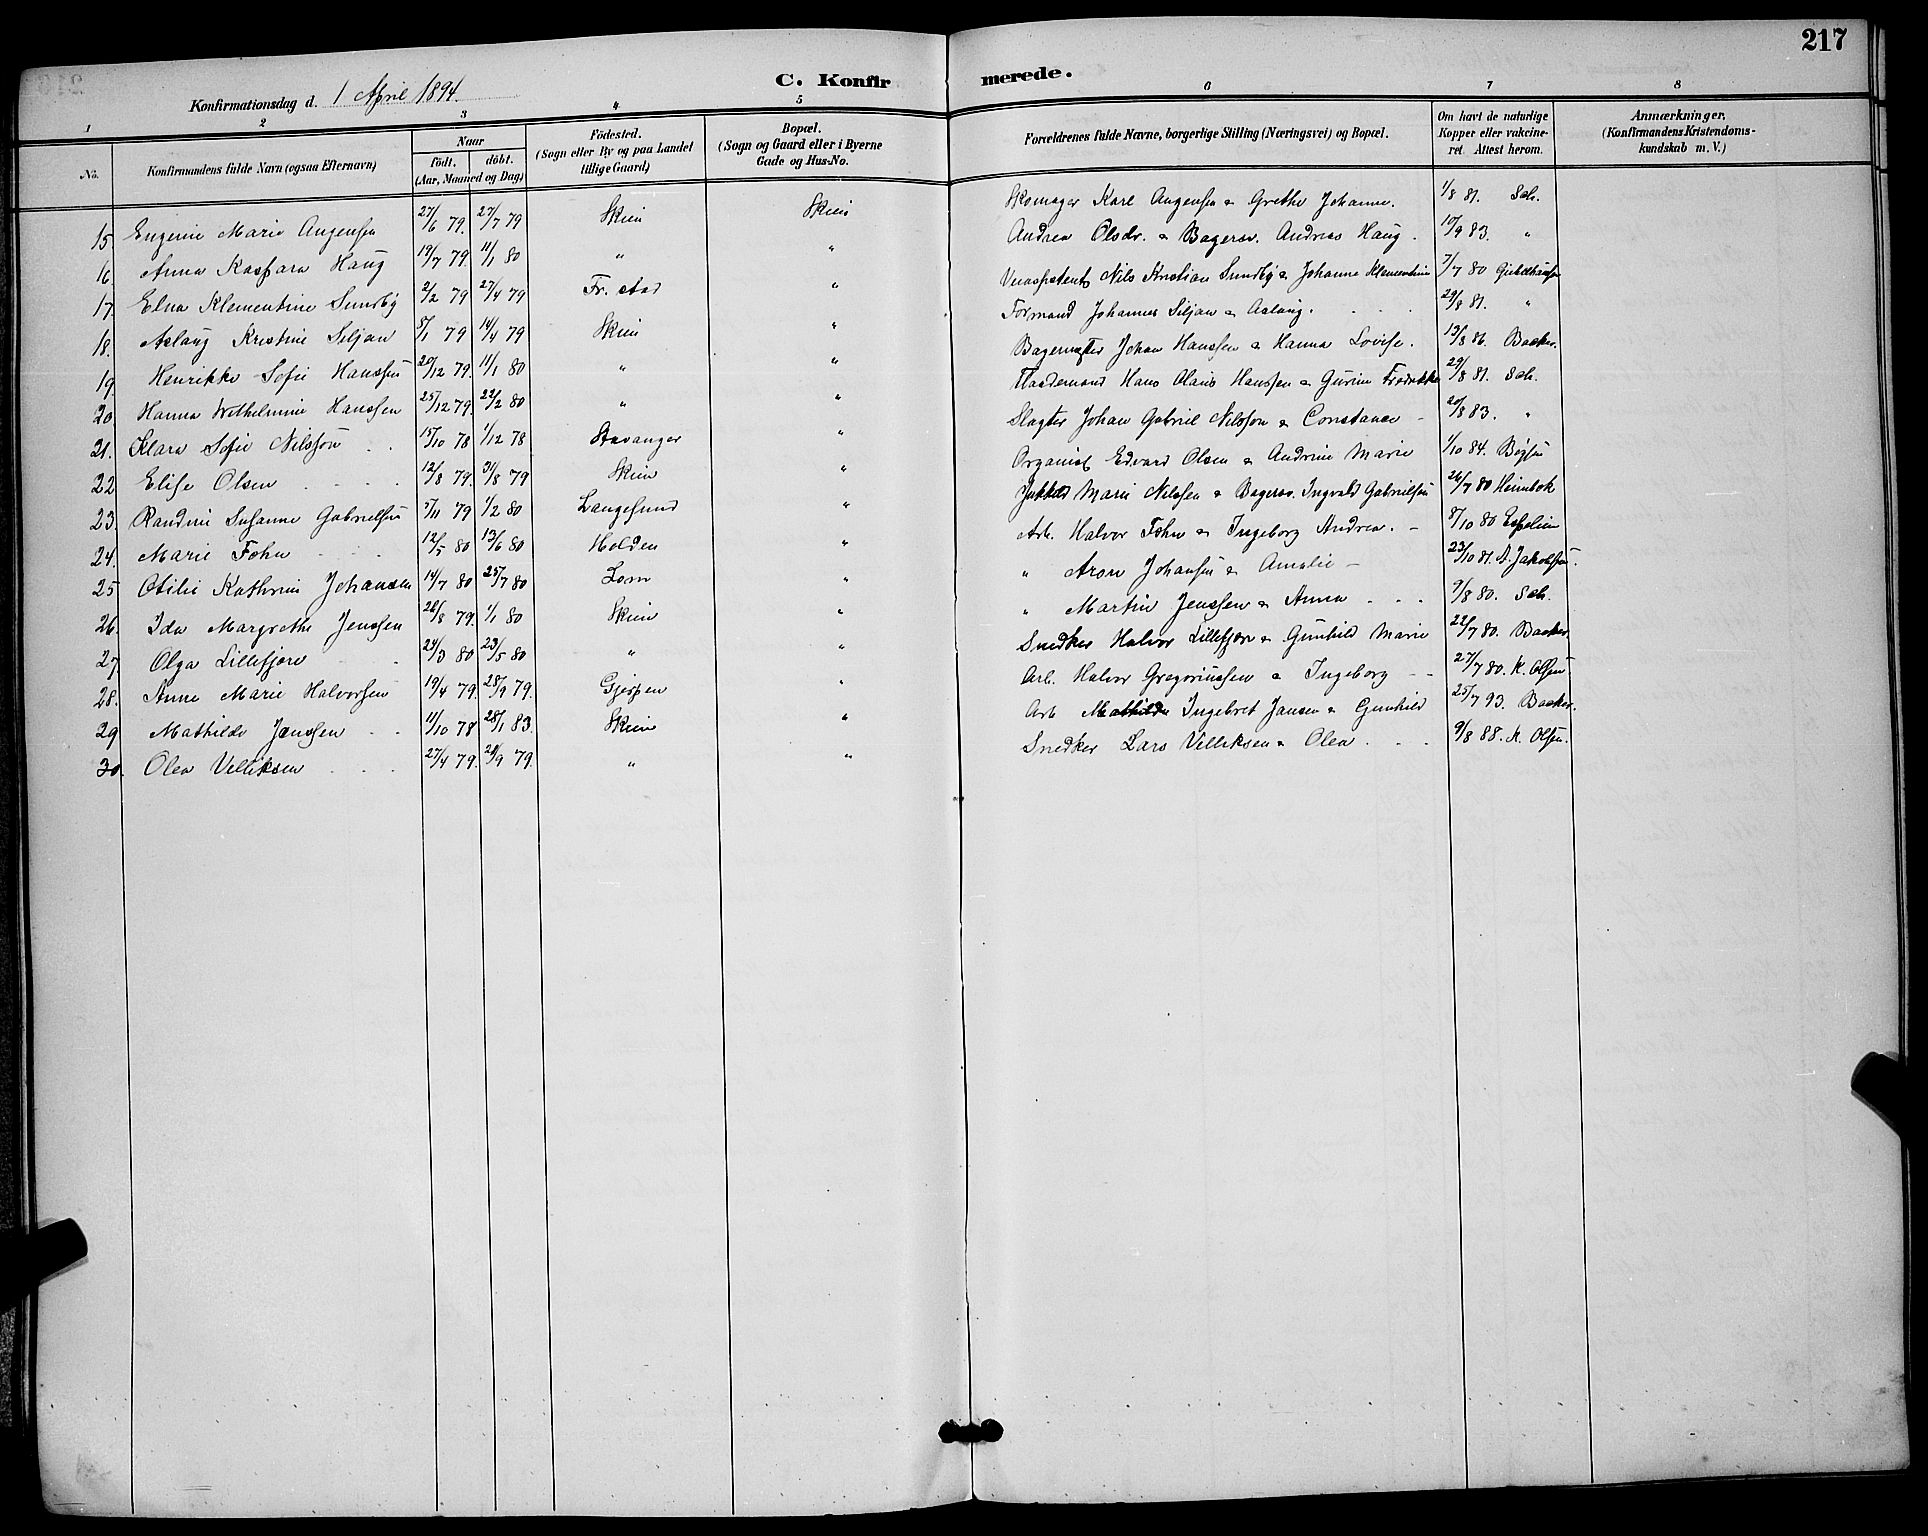 217
C. Konfirmerede.
Konfirmationsdag d. 1 April 1894.
1 2 3 4 5 6 7 8
No. Konfirmandens fulde Navn (ogsaa Efternavn) Naar født, døbt. (Aar, Maaned og Dag) Fødested. (Sogn eller By og paa Landet tillige Gaard) Bopæl. (Sogn og Gaard eller i Byerne Gade og Hus-No. Forældrenes fulde Navne, borgerlige Stilling (Næringsvei) og Bopæl. Om havt de naturlige Kopper eller vakcineret. Attest herom. Anmærkninger. (Konfirmandens Kristendomskundskab m. V.)
15. Eugenie Marie Augensen 27/6 79. 27/7 79 Skien Skien Skomager Karl Augensen & Grethe Johanne. 1/8 81. Sch.
16. Anna Kaspara Haug 19/7 79. 11/1 80 " " Andrea Olsdr. & Bagersv. Andreas Haug. 10/9 83. "
17. Elna Klementine Sundby 2/2 79 27/4 79 Fr. stad " Nils Kristian Sundby & Johanne Klementine 7/7 80
18. Aslaug Kristine Siljan 8/1 79 14/4 79 Skien " Formand Johannes Siljan & Aslaug. 29/8 81. "
19. Henrikke Sofie Hanssen 20/12 79. 11/1 80 " " Bagermester Johan Hanssen & Hanna Lovise. 19/8 86. Baaker.
20. Hanna Wilhelmine Hanssen 25/12 79. 22/2 80 " " Hans Olaus Hanssen & Gurine Fredrikke 29/8 81. Sch.
21. Klara Sofie Nilsson 15/10 78 1/12 78 Stavanger " Slagter Johan Gabriel Nilsson & Constance 20/8 83. "
22 Elise Olsen 12/8 79. 31/8 79 Skien " Organist Edvard Olsen & Andrine Marie 1/10 84.
23. Randine Susanne Gabrielsen 5/11 79 1/2 80 Langesund " Marie Nilssen & Bagersv. Ingvald Gabrielsen 26/7 80 Heimbek
24. Marie Fohn 12/5 80 13/6 80 Holden " Arb. Halvor Fohn & Ingeborg Andrea. 8/10 80 Espelien
25 Otilie Kathrine Johansen 14/7 80 25/7 80 Lom " " Aron Johansen & Amalie 23/10 81. A. Jakobsen.
26. Ida Margrethe Jenssen 22/8 79. 1/1 80 Skien " " Martin Jenssen & Anna 9/8 80. Sch.
27. Olga Lillefjore 24/3 80 23/5 80 " " Snedker Halvor Lillefjore & Gunhild Marie 22/7 80. Baaker.
28. Anne Marie Halvorsen 19/4 79. 28/9 79. Gjerpen " Arb. Halvor Gregoriussen & Ingeborg 27/7 80. K. Olsen
29 Mathilde Jenssen 11/10 78 28/1 83. Skien " Arb Mathilde Ingebret Jansen & Gunhild 25/7 93. Baaker.
30. Olea Velliksen 27/4 79. 28/9 79. " " Snedker Lars Velliksen & Olea 9/8 88. K. Olsen.